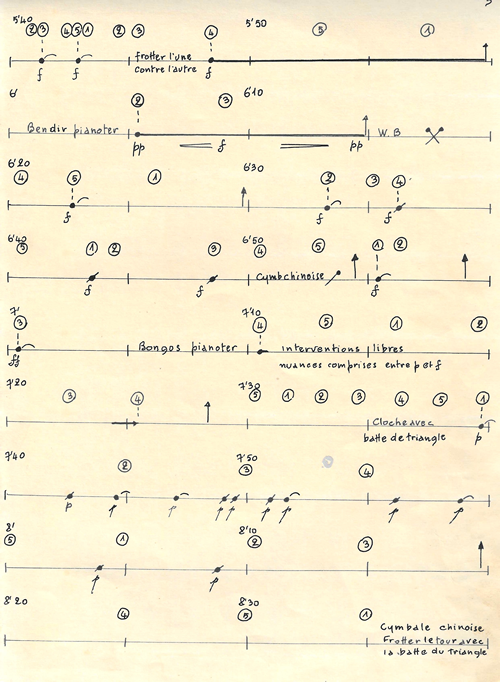 5'40 5'50
② ③ ④ ⑤ ① ② ③ ④ ⑤ ①
frotter l'une
contre l'autre
f f f
6' 6'10
② ③
Bendir pianoter W.B
pp f pp
6'20 6'30
④ ⑤ ① ② ③ ④
f f f
6'40 6'50
③ ① ② ③ ④ ⑤ ① ②
Cymb chinoise
f f f
7' 7'10
③ ④ ⑤ ① ②
Bongos pianoter interventions libres
ff nuances comprises entre p et f
7'20 7'30
③ ④ ⑤ ① ② ③ ④ ⑤ ①
Cloche avec
batte de triangle p
7'40 7'50
② ③ ④
p p p p p p p p p
8' 8'10
⑤ ① ② ③
p p
8'20 8'30
④ ⑤ ①
Cymbale chinoise
Frotter le tour avec
la batte du triangle